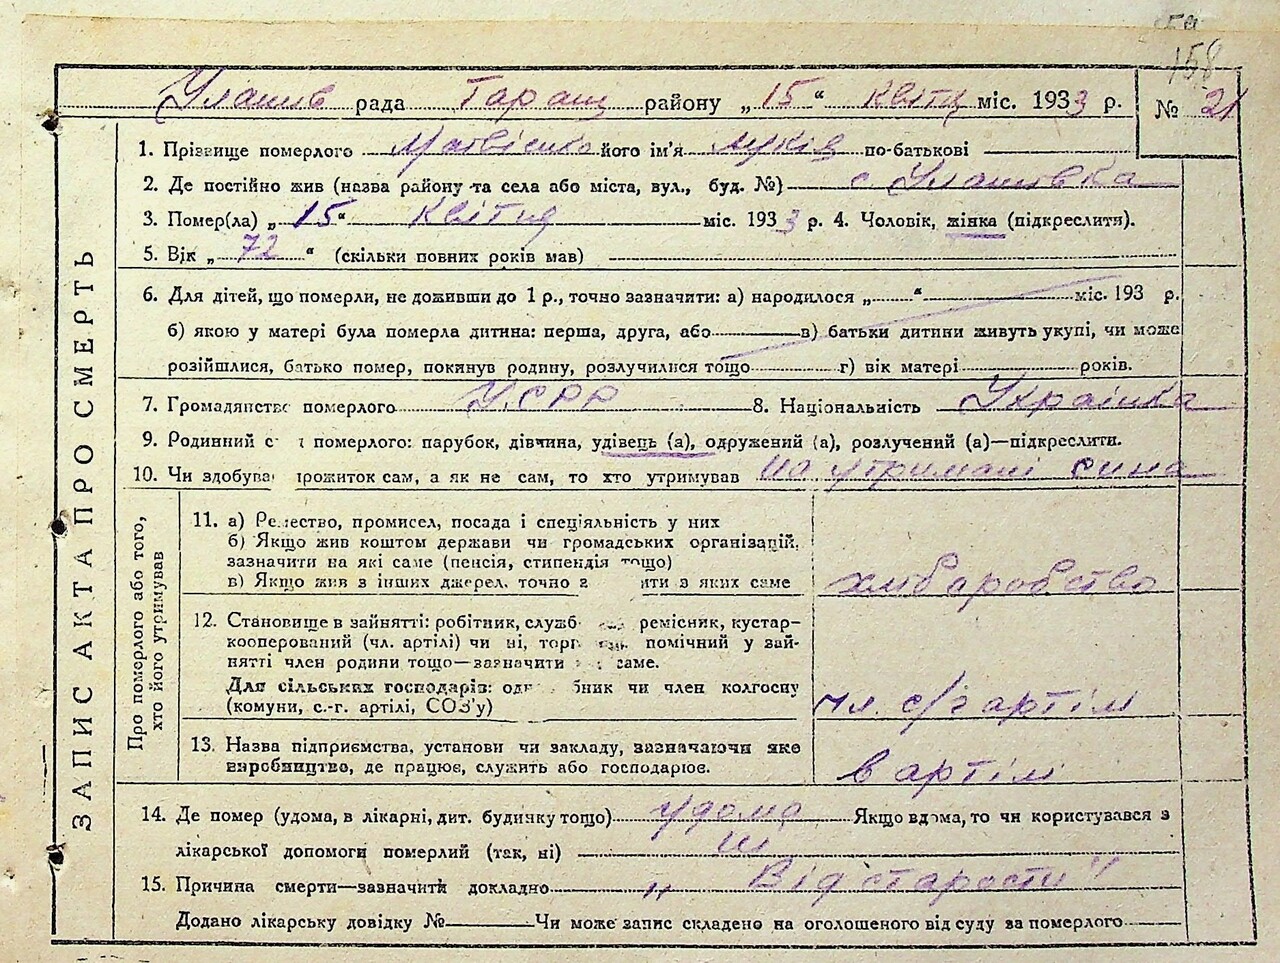 158
Улашів рада Таращ району „15“ Квітц міс. 1933 р. № 21
ЗАПИС АКТА ПРО СМЕРТЬ
1. Прізвище померлого Матвієнко його ім'я по-батькові
2. Де постійно жив (назва району та села або міста, вул., буд. №) с. Улашівка
3. Помер(ла) „15“ Квітця міс. 1933 р. 4. Чоловік, жінка (підкреслити).
5. Вік „72“ (скільки повних років мав)
6. Для дітей, що померли, не доживши до 1 р., точно зазначити: а) народилося „ “ міс. 193 р.
б) якою у матері була померла дитина: перша, друга, або в) батьки дитини живуть укупі, чи може
розійшлися, батько помер, покинув родину, розлучилися тощо г) вік матері років.
7. Громадянство померлого УСРР 8. Національність Українка
9. Родинний с і померлого: парубок, дівчина, удівець (а), одружений (а), розлучений (а)—підкреслити.
10. Чи здобував прожиток сам, а як не сам, то хто утримував на утримані сина
Про померлого або того, хто його утримував
11. а) Ремество, промисел, посада і спеціяльність у них
б) Якщо жив коштом держави чи громадських організацій,
зазначити на які саме (пенсія, стипендія тощо)
в) Якщо жив з інших джерел, точно з ити з яких саме хліборобство
12. Становище в зайнятті: робітник, служб ремісник, кустар-
кооперований (чл. артілі) чи ні, торг помічний у зай-
нятті член родини тощо—зазначити саме.
Для сільських господарів: од бник чи член колгоспу
(комуни, с.-г. артілі, СОЗ'у) чл. с/г артілі
13. Назва підприємства, установи чи закладу, зазначаючи яке
виробництво, де працює, служить або господарює. в артілі
14. Де помер (удома, в лікарні, дит. будинку тощо) удома Якщо вдома, то чи користувався з
лікарської допомоги померлий (так, ні) ні
15. Причина смерти—зазначити докладно „Від старости“
Додано лікарську довідку № Чи може запис складено на оголошеного від суду за померлого